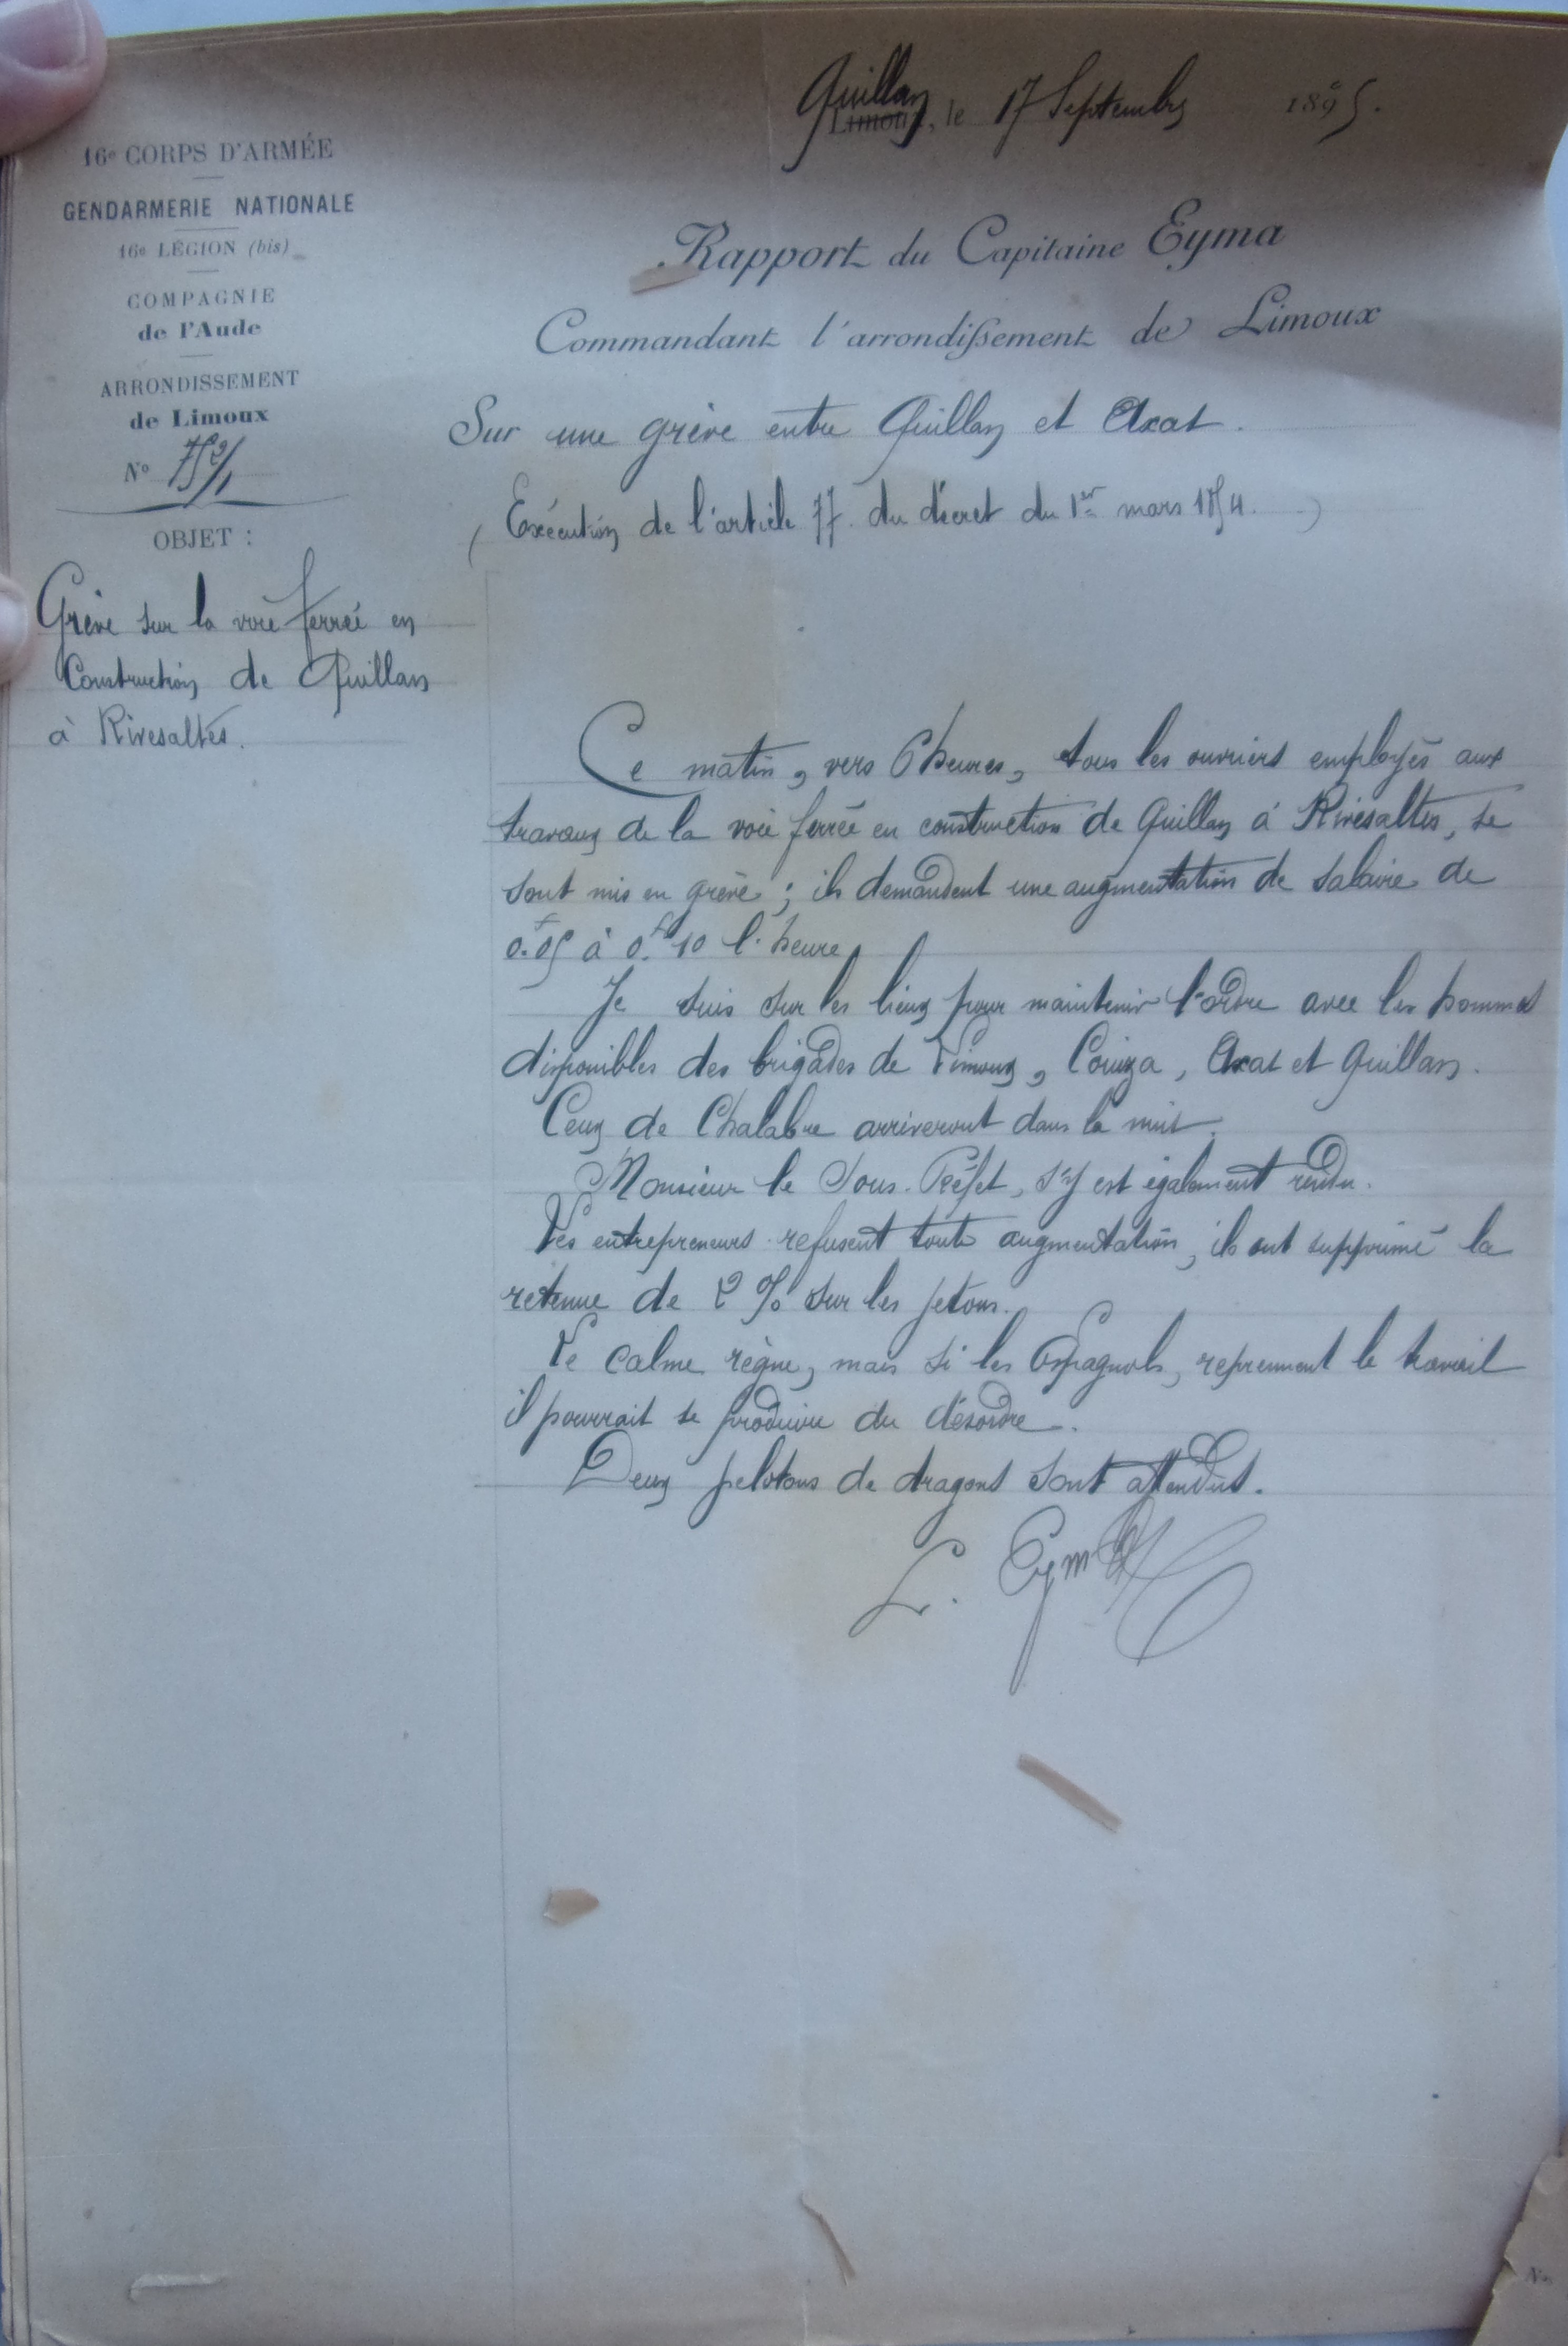 Quillan
Limoux, le 17 Septembre 1895.
16e CORPS D'ARMÉE
GENDARMERIE NATIONALE
16e LÉGION (bis)
COMPAGNIE
de l'Aude
ARRONDISSEMENT
de Limoux
N°
OBJET :
Grève sur la voie ferrée en
Construction de Quillan
à Rivesaltes.
Rapport du Capitaine Eyma
Commandant l'arrondissement de Limoux
Sur une grève entre Quillan et Axat.
(Exécution de l'article 77 du décret du 1er mars 1854.)
Ce matin, vers 6 heures, tous les ouvriers employés aux
travaux de la voie ferrée en construction de Quillan à Rivesaltes, se
sont mis en grève ; ils demandent une augmentation de salaire de
0.f05 à 0.f10 l'heure
Je suis sur les lieux pour maintenir l'ordre avec les hommes
disponibles des brigades de Limoux, Couiza, Axat et Quillan.
Ceux de Chalabre arriveront dans la nuit.
Monsieur le Sous-Préfet, s'y est également rendu.
Les entrepreneurs refusent toute augmentation, ils ont supprimé la
retenue de 2 % sur les jetons.
Le calme règne, mais si les Espagnols, reprennent le travail
il pourrait se produire du désordre.
Deux pelotons de dragons sont attendus.
L. Eyma